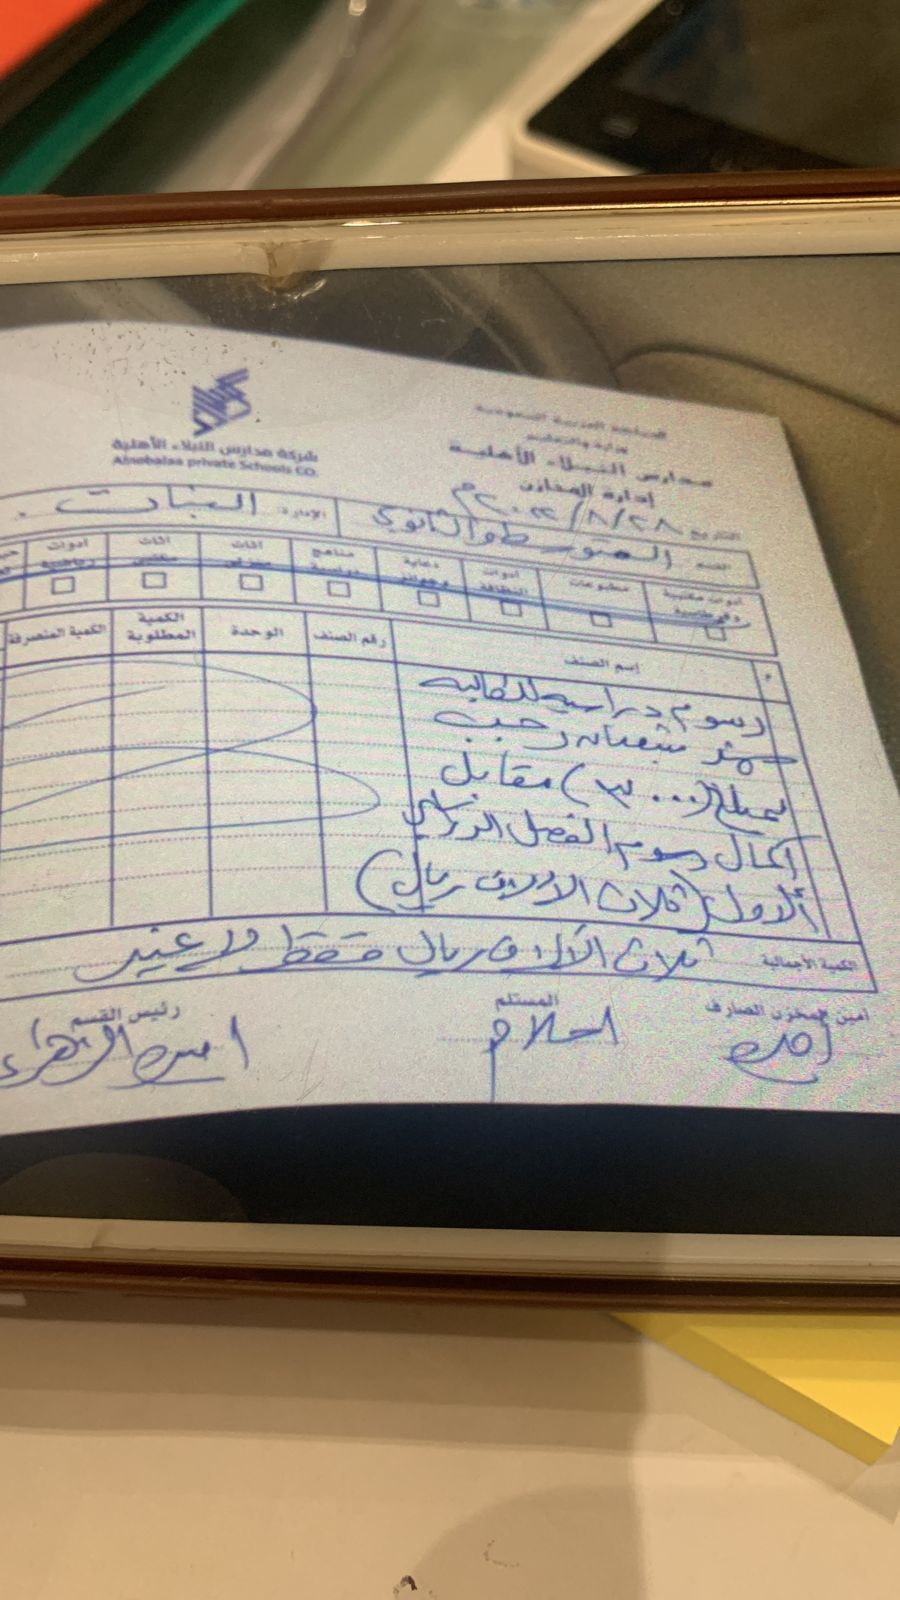 المملكة العربية السعودية
وزارة التعليم
مدارس النبلاء الأهلية
إدارة المخازن
شركة مدارس النبلاء الأهلية
Alnobalaa private Schools CO.
التاريخ ٢٨/٨/٢٠٢٢م
القسم المتوسط والثانوي الإدارة البنات
أدوات مكتبية مطبوعات أدوات النظافة دعاية وجوائز مناهج دراسية اثاث منزلي اثاث مكتبي أدوات رياضية
م إسم الصنف رقم الصنف الوحدة الكمية المطلوبة الكمية المنصرفة
رسوم دراسية للطالبة
شعبان رجب
بمبلغ (٣٠٠٠) مقابل
اكمال رسوم الفصل الدراسي
الأول (ثلاث الالاف ريال)
الكمية الأجمالية ثلاث الألاف ريال فقط لا غير
أمين المخزن الصارف المستلم رئيس القسم
احلام